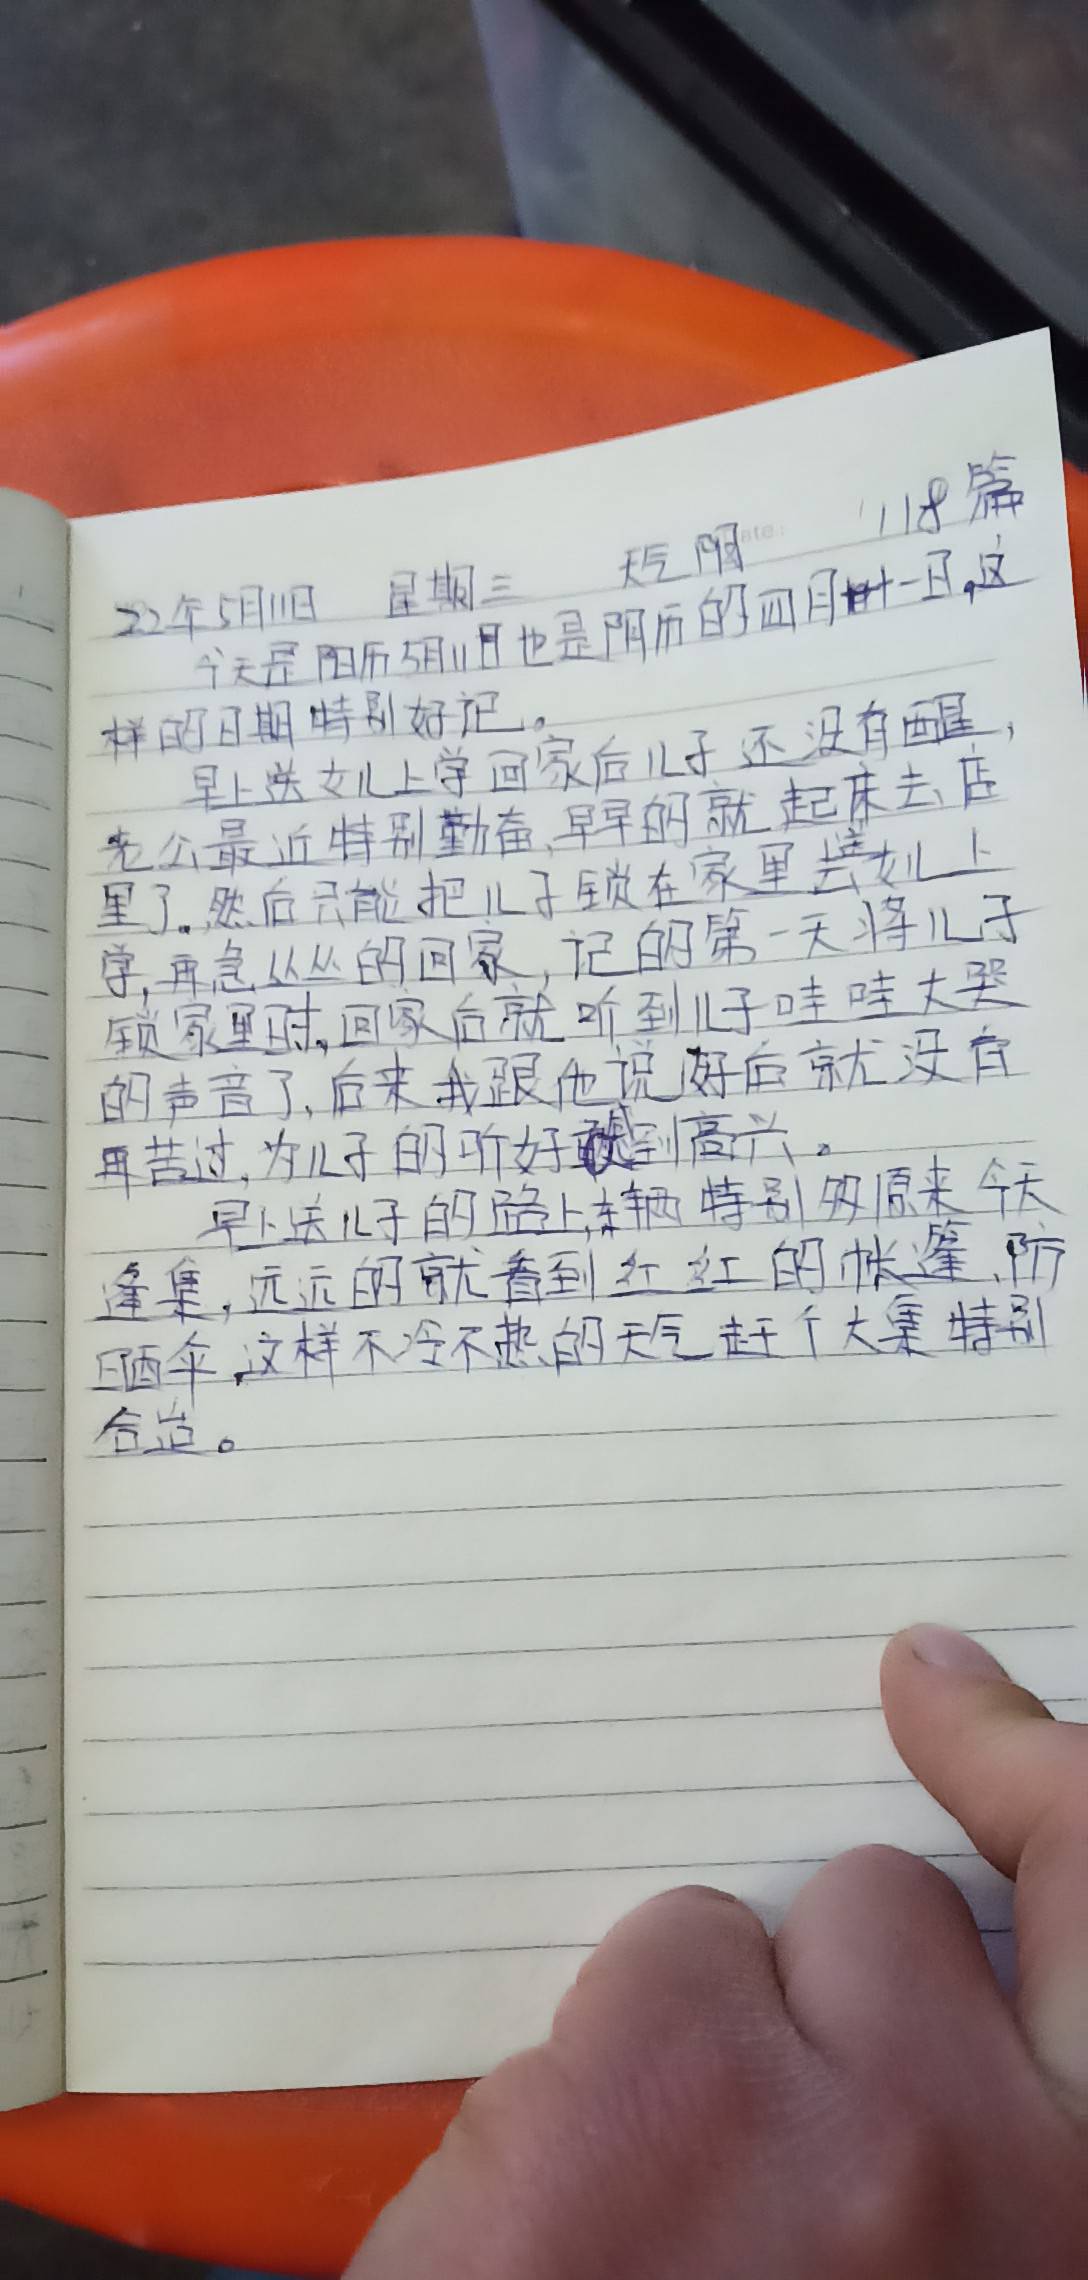 118篇
22年5月11日 星期三 天气阴
今天是阳历5月11日也是阴历的四月十一日,这
样的日期特别好记。
早上送女儿上学回家后儿子还没有醒,
老公最近特别勤奋,早早的就起床去店
里了。然后只能把儿子锁在家里送女儿上
学,再急丛丛的回家,记的第一天将儿子
锁家里时,回家后就听到儿子哇哇大哭
的声音了,后来我跟他说好后就没有
再苦过,为儿子的听好感到高兴。
早上送儿子的路上,车辆特别多原来今天
逢集,远远的就看到红红的帐篷、防
晒伞,这样不冷不热的天气赶个大集特别
合岩。